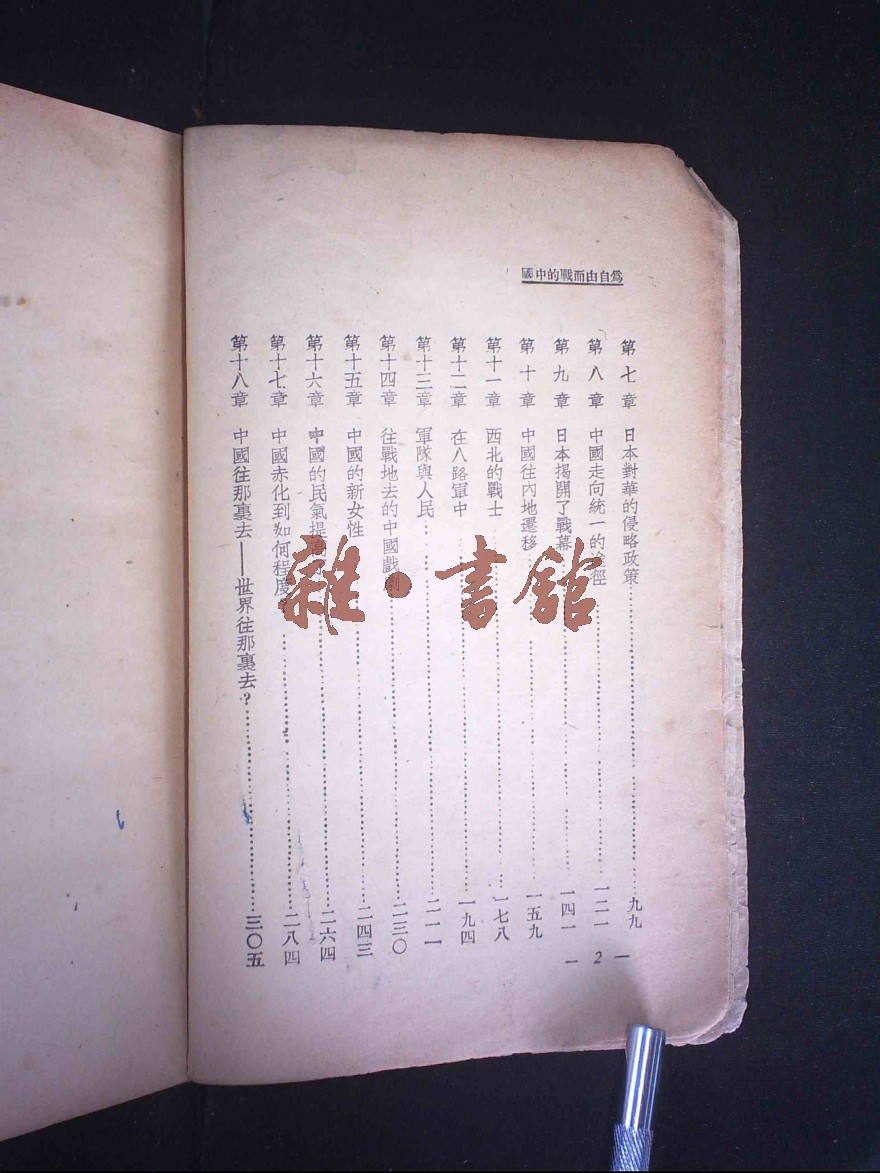 國中的戰而由自爲
第七章 日本對華的侵略政策 九九
第八章 中國走向統一的途徑 一二一
第九章 日本揭開了戰幕 一四一
第十章 中國往內地遷移 一五九
第十一章 西北的戰士 一七八
第十二章 在八路軍中 一九四
第十三章 軍隊與人民 二一一
第十四章 往戰地去的中國戲劇 二三〇
第十五章 中國的新女性 二四三
第十六章 中國的民氣提高 二六四
第十七章 中國赤化到如何程度 二八四
第十八章 中國往那裏去——世界往那裏去? 三〇五
— 2 —
雜·書館